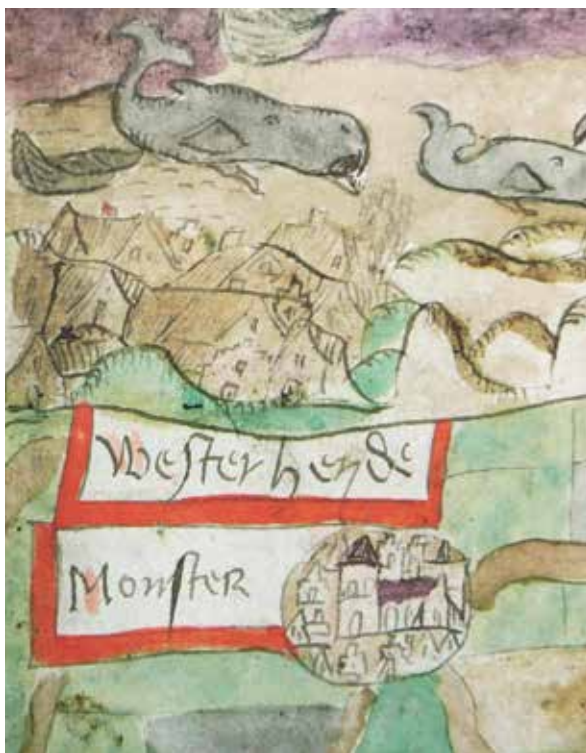 Westerheyde
Monster